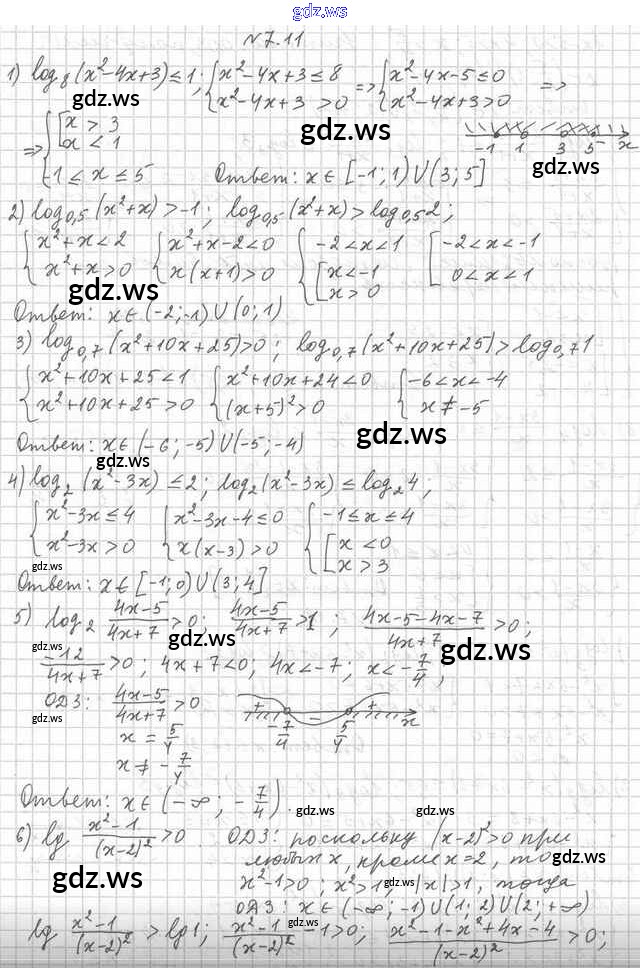 gdz.ws
N 7.11
1) log₈(x²-4x+3)≤1; {x²-4x+3≤8 => {x²-4x-5≤0 =>
{x²-4x+3 >0 {x²-4x+3>0
gdz.ws gdz.ws
=> {[x > 3
[x < 1
-1 1 3 5 x
gdz.ws
-1≤x≤5 Ответ: x∈[-1;1)∪(3;5]
2) log₀,₅(x²+x)>-1; log₀,₅(x²+x)>log₀,₅2;
{x²+x<2 {x²+x-2<0 {-2<x<1 [-2<x<-1
{x²+x>0 {x(x+1)>0 {[x<-1 [0<x<1
[x>0
gdz.ws
Ответ: x∈(-2;-1)∪(0;1)
3) log₀,₇(x²+10x+25)>0; log₀,₇(x²+10x+25)>log₀,₇1
{x²+10x+25<1 {x²+10x+24<0 {-6<x<-4
{x²+10x+25>0 {(x+5)²>0 {x≠-5
Ответ: x∈(-6;-5)∪(-5;-4)
gdz.ws gdz.ws
4) log₂(x²-3x)≤2; log₂(x²-3x)≤log₂4;
{x²-3x≤4 {x²-3x-4≤0 {-1≤x≤4
{x²-3x>0 {x(x-3)>0 {[x<0
[x>3
gdz.ws
Ответ: x∈[-1;0)∪(3;4]
5) log₂ (4x-5)/(4x+7)>0; (4x-5)/(4x+7)>1; (4x-5-4x-7)/(4x+7)>0;
gdz.ws gdz.ws gdz.ws
-12/(4x+7)>0; 4x+7<0; 4x<-7; x<-7/4;
ОДЗ: (4x-5)/(4x+7)>0
gdz.ws
+ - + x
-7/4 5/4
x = 5/4
x ≠ -7/4
Ответ: x∈(-∞; -7/4).
gdz.ws gdz.ws
6) lg (x²-1)/(x-2)²>0 ОДЗ: поскольку (x-2)²>0 при
любых x, кроме x=2, то
gdz.ws
x²-1>0; x²>1; |x|>1, тогда
gdz.ws gdz.ws
ОДЗ: x∈(-∞;-1)∪(1;2)∪(2;+∞)
gdz.ws
lg (x²-1)/(x-2)² > lg1; (x²-1)/(x-2)² -1>0; (x²-1-x²+4x-4)/(x-2)²>0;